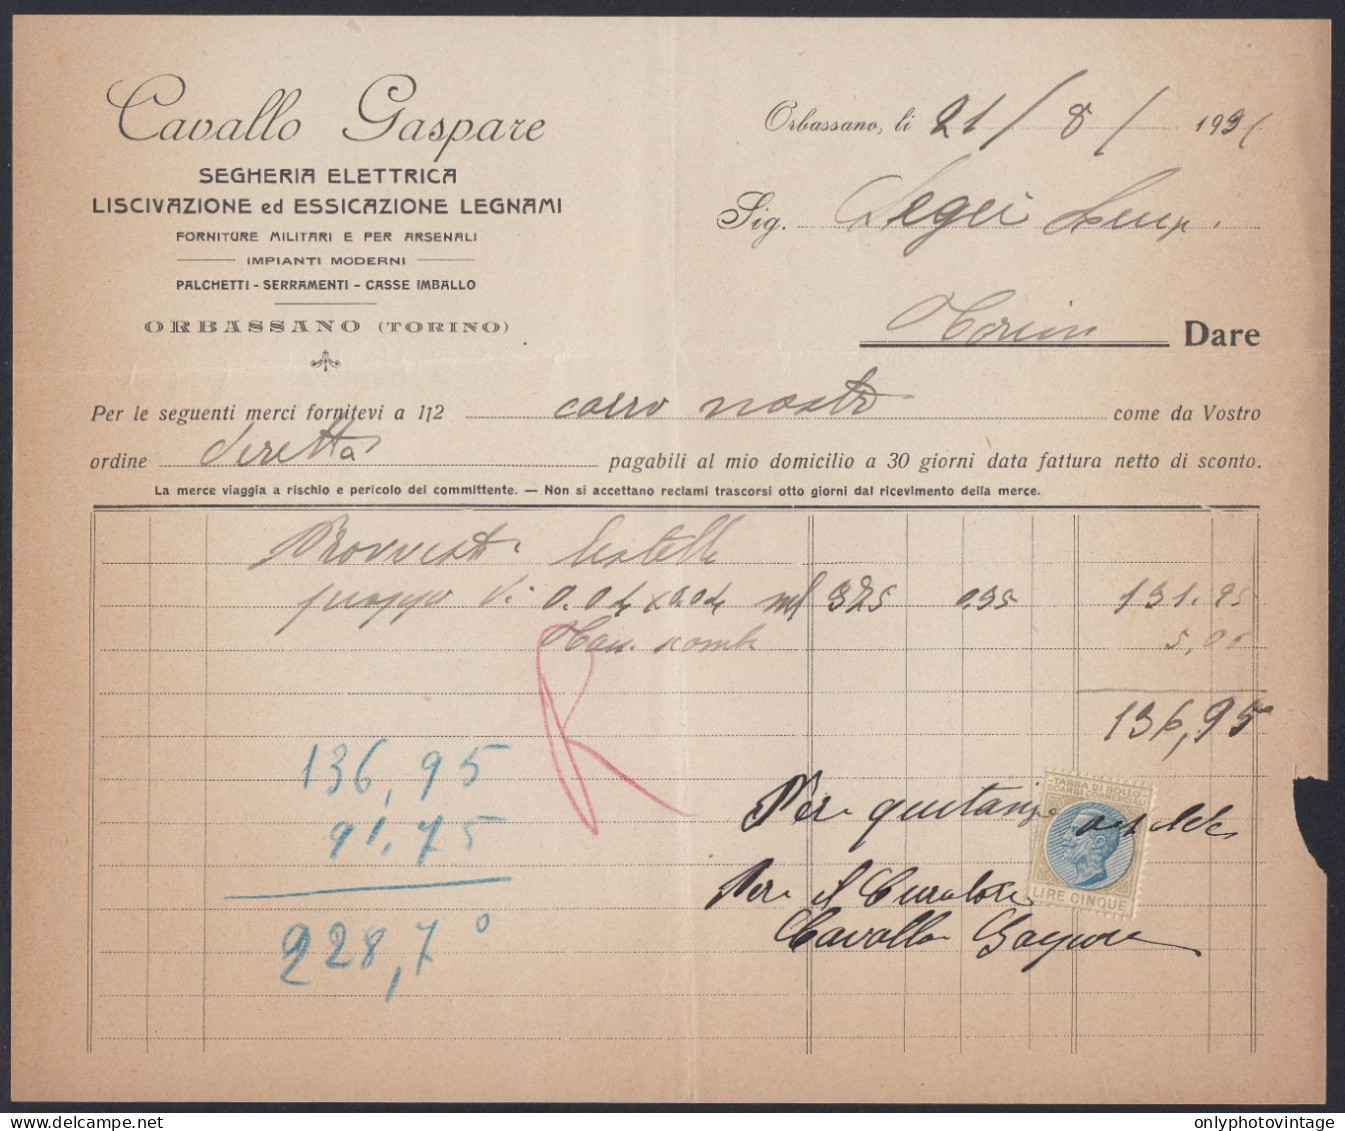 Cavallo Gaspare
SEGHERIA ELETTRICA
LISCIVAZIONE ed ESSICAZIONE LEGNAMI
FORNITURE MILITARI E PER ARSENALI
IMPIANTI MODERNI
PALCHETTI - SERRAMENTI - CASSE IMBALLO
ORBASSANO (TORINO)
Orbassano, li 21/8/1931
Sig.
Torino Dare
Per le seguenti merci fornitevi a 1|2 carro nostro come da Vostro
ordine diretta pagabili al mio domicilio a 30 giorni data fattura netto di sconto.
La merce viaggia a rischio e pericolo del committente. — Non si accettano reclami trascorsi otto giorni dal ricevimento della merce.
Provvista listelli
pioppo di 0.04x0.04 ml 325 0.35 131.95
5,00
136,95
136,95
91,75
228,70
TASSA DI BOLLO
SCAMBI COMMERCIALI
LIRE CINQUE
Per quietanza
Per il Curatore
Cavallo Gaspare
onlyphotovintage